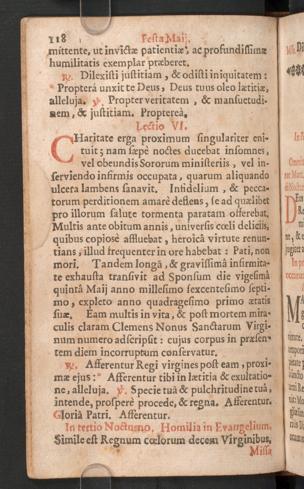 118 Festa Maij.
mittente, ut invictæ patientiæ, ac profundissimæ
humilitatis exemplar præberet.
℟. Dilexisti justitiam, & odisti iniquitatem:
* Propterà unxit te Deus, Deus tuus oleo lætitiæ,
alleluja. ℣. Propter veritatem, & mansuetudi-
nem, & justitiam. Proptereà.
Lectio VI.
CHaritate erga proximum singulariter eni-
tuit; nam sæpè noctes ducebat insomnes,
vel obeundis Sororum ministeriis, vel in-
serviendo infirmis occupata, quarum aliquando
ulcera lambens sanavit. Infidelium, & pecca-
torum perditionem amarè deflens, se ad quælibet
pro illorum salute tormenta paratam offerebat.
Multis ante obitum annis, universis cœli deliciis,
quibus copiosè affluebat, heroicâ virtute renun-
tians, illud frequenter in ore habebat: Pati, non
mori. Tandem longâ, & gravissimâ infirmita-
te exhausta transivit ad Sponsum die vigesimâ
quintâ Maij anno millesimo sexcentesimo septi-
mo, expleto anno quadragesimo primo ætatis
suæ. Eam multis in vita, & post mortem mira-
culis claram Clemens Nonus Sanctarum Virgi-
num numero adscripsit: cujus corpus in præsen-
tem diem incorruptum conservatur.
℟. Afferentur Regi virgines post eam, proxi-
mæ ejus: * Afferentur tibi in lætitia & exultatio-
ne, alleluja. ℣. Specie tuâ & pulchritudine tuâ,
intende, prosperè procede, & regna. Afferentur.
Gloria Patri. Afferentur.
In tertio Nocturno, Homilia in Evangelium,
Simile est Regnum cœlorum decem Virginibus,
Missa